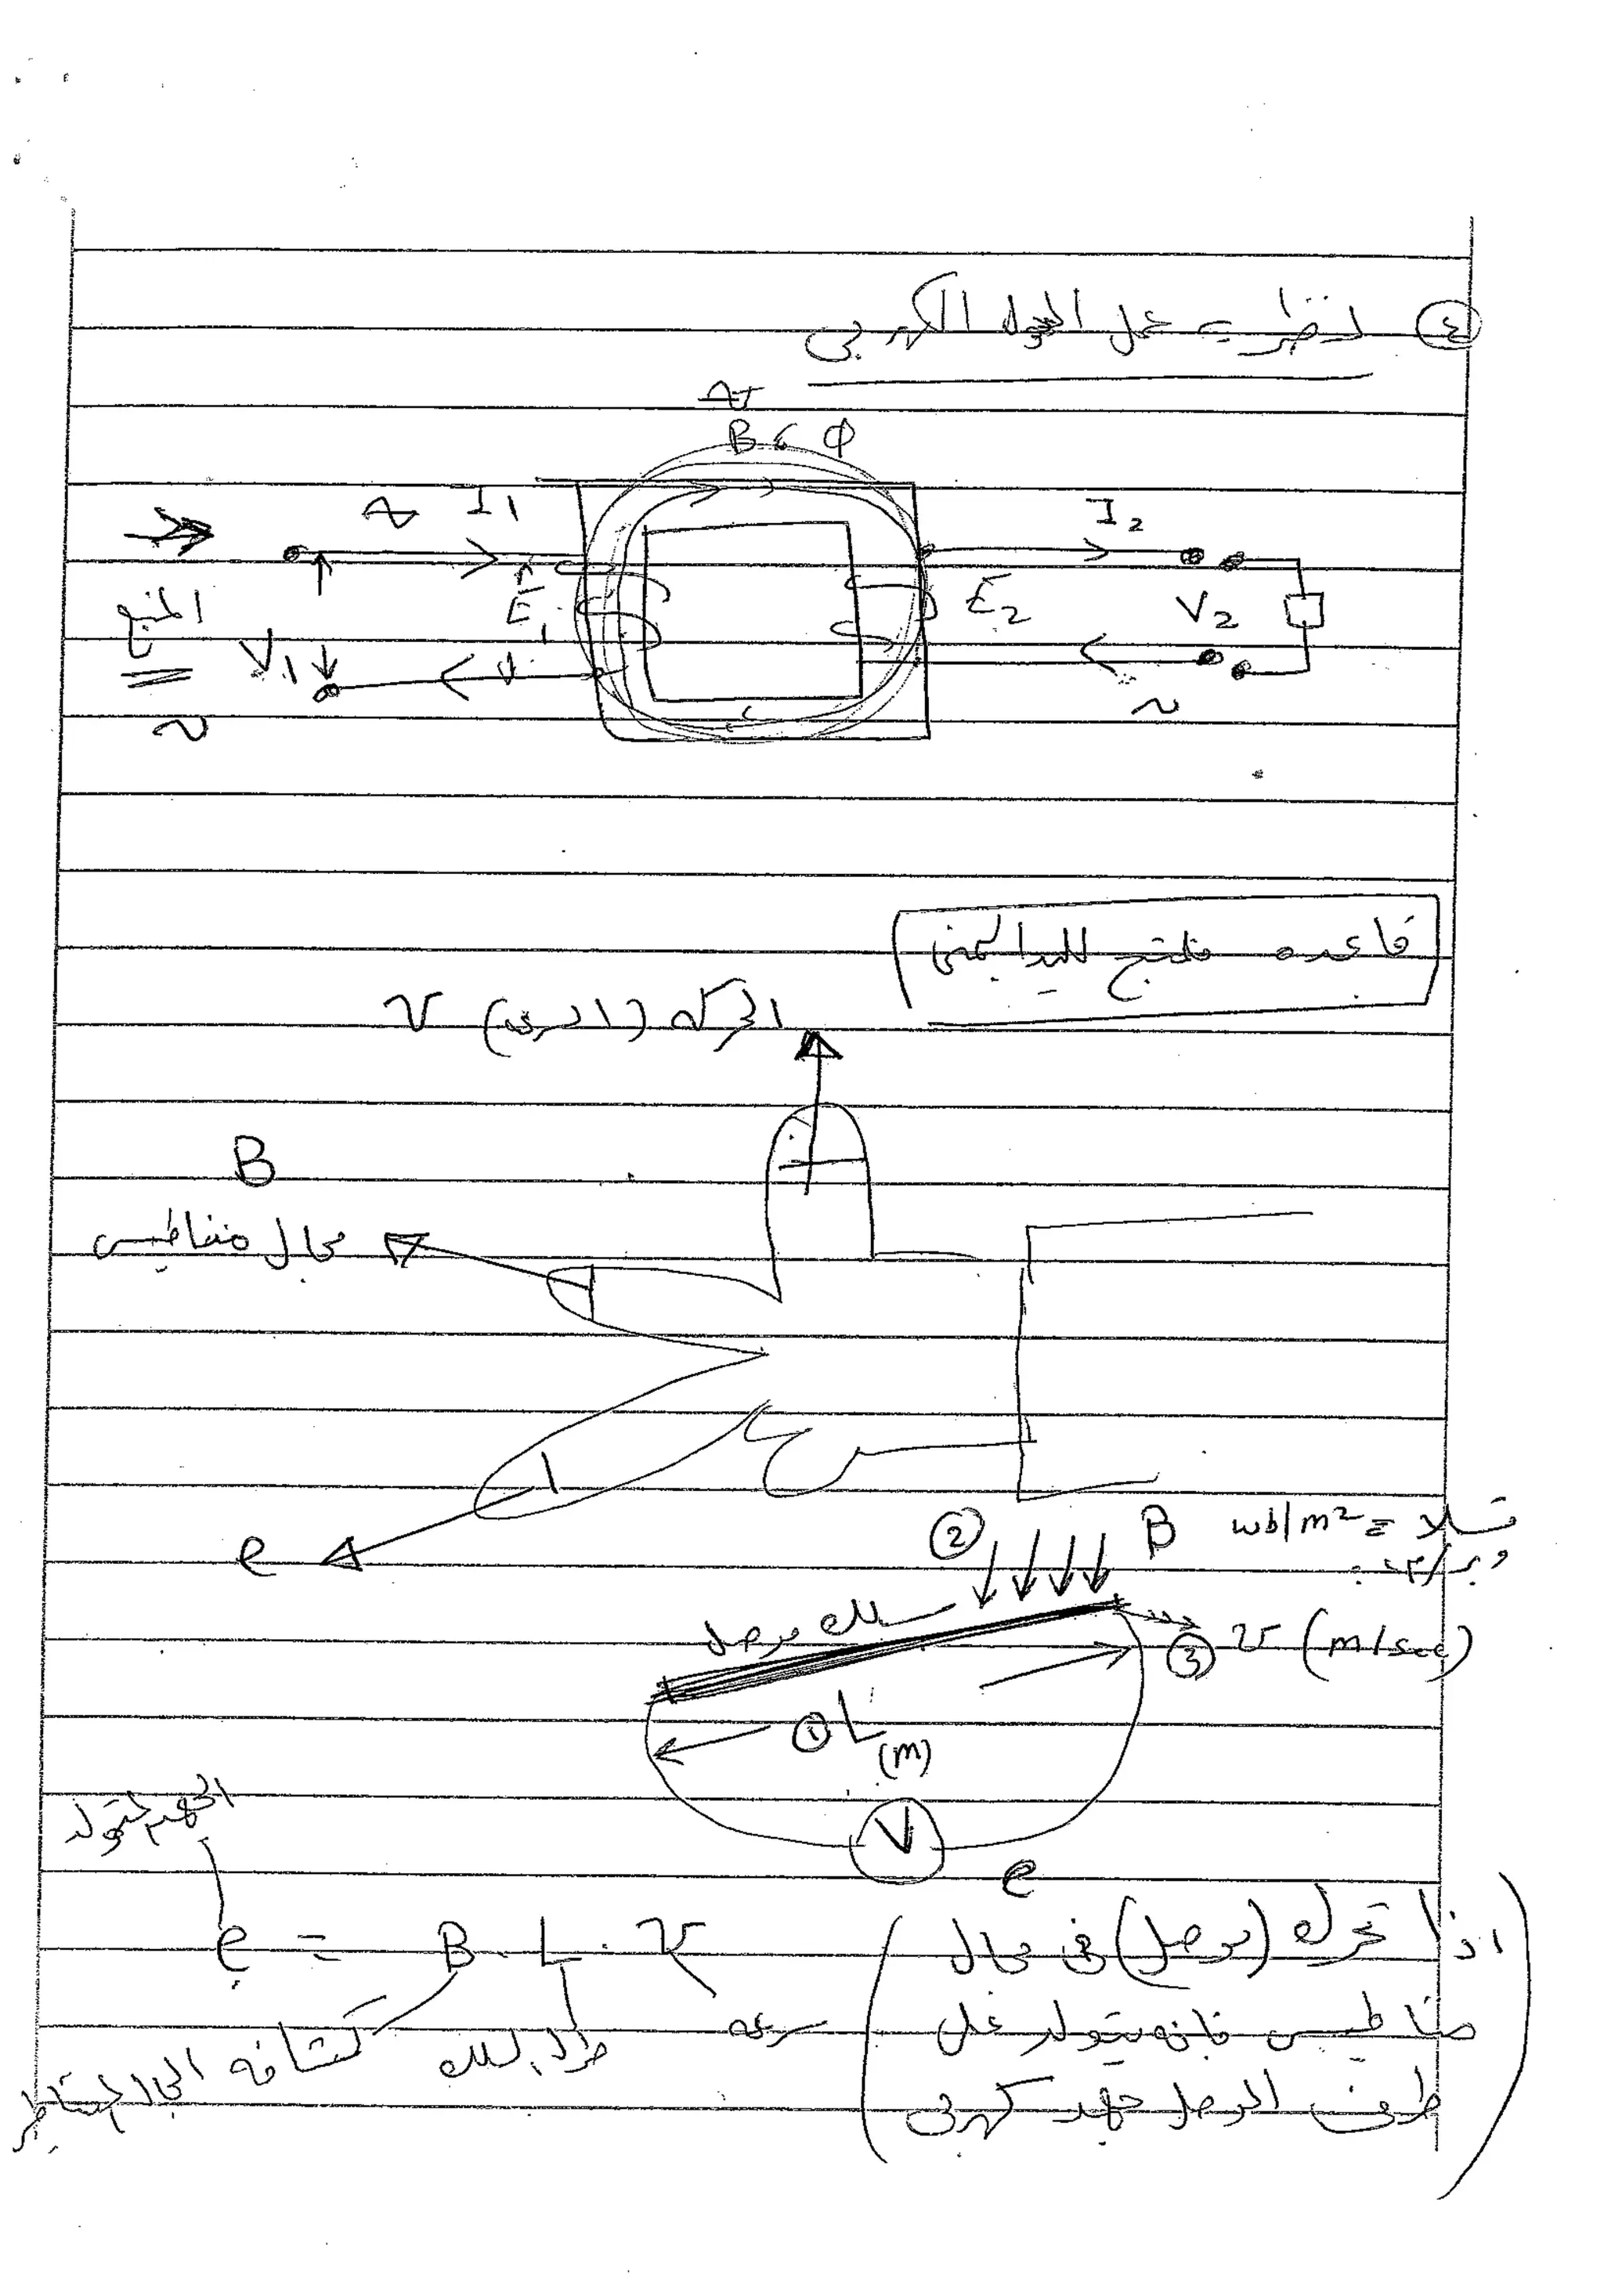 ٤ لنظرية عمل المحول الكهربى
~
B ، Φ
~ I1
I2
المنبع
V1
E1
E2
V2
~
~
قاعده فلمنج لليد اليمنى
الحركه (السرعه) v
B
مجال مغناطيسى
e
② B wb/m² = تسلا
وبر/م٢
سلك موصل
③ v (m/sec)
① L (m)
V
e
الجهد المتولد
e = B . L . v
سرعه
طول السلك
كثافه المجال المغناطيسى
(اذا تحرك (موصل) فى مجال
مغناطيسى فانه يتولد على
طرفى الموصل جهد كهربى)